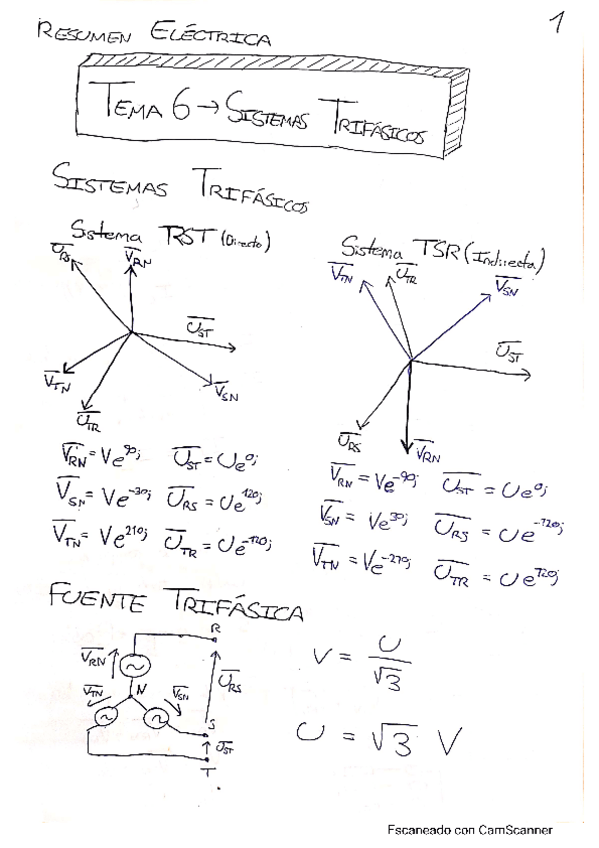 1
RESUMEN ELÉCTRICA
TEMA 6 → SISTEMAS TRIFÁSICOS
SISTEMAS TRIFÁSICOS
Sistema RST (Directo)
U̅RS V̅RN
U̅ST
V̅TN V̅SN
U̅TR
V̅RN = Ve^90j U̅ST = Ue^0j
V̅SN = Ve^-30j U̅RS = Ue^120j
V̅TN = Ve^210j U̅TR = Ue^-120j
Sistema TSR (Indirecta)
V̅TN U̅TR V̅SN
U̅ST
U̅RS V̅RN
V̅RN = Ve^-90j U̅ST = Ue^0j
V̅SN = Ve^30j U̅RS = Ue^-120j
V̅TN = Ve^-210j U̅TR = Ue^120j
FUENTE TRIFÁSICA
R
V̅RN
U̅RS
V̅TN N V̅SN
S
U̅ST
T
V = U/√3
U = √3 V
Escaneado con CamScanner